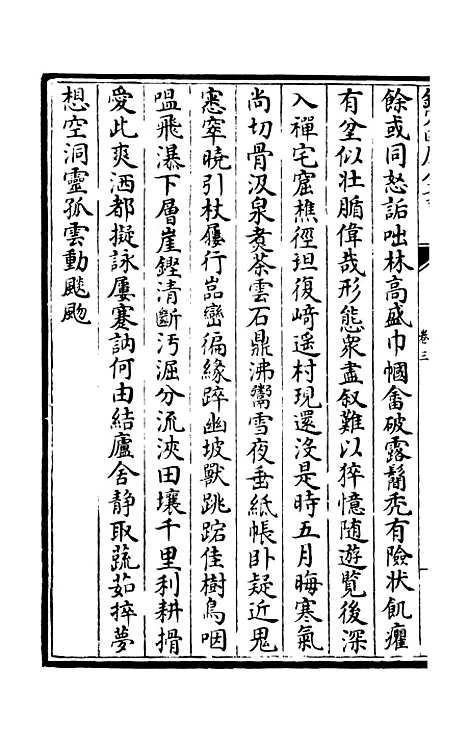 餘或同怒詬咄林高盛巾幗畬破露鬜禿有險狀飢癯
有坌似壯腯偉哉形態衆盡叙難以猝憶隨遊覽後深
入禪宅窟樵徑坦復﨑遥村現還沒是時五月晦寒氣
尚切骨汲泉煑茶雲石鼎沸鬻雪夜垂紙帳卧疑近鬼
窸窣曉引杖屨行嵓巒徧緣踤幽坡獸跳踞佳樹鳥咽
嗢飛瀑下層崖鏗清斷汚淈分流浹田壤千里利耕搰
愛此爽洒都擬詠屢蹇訥何由結廬舍静取蔬茹捽夢
想空洞靈孤雲動飈颮
卷三